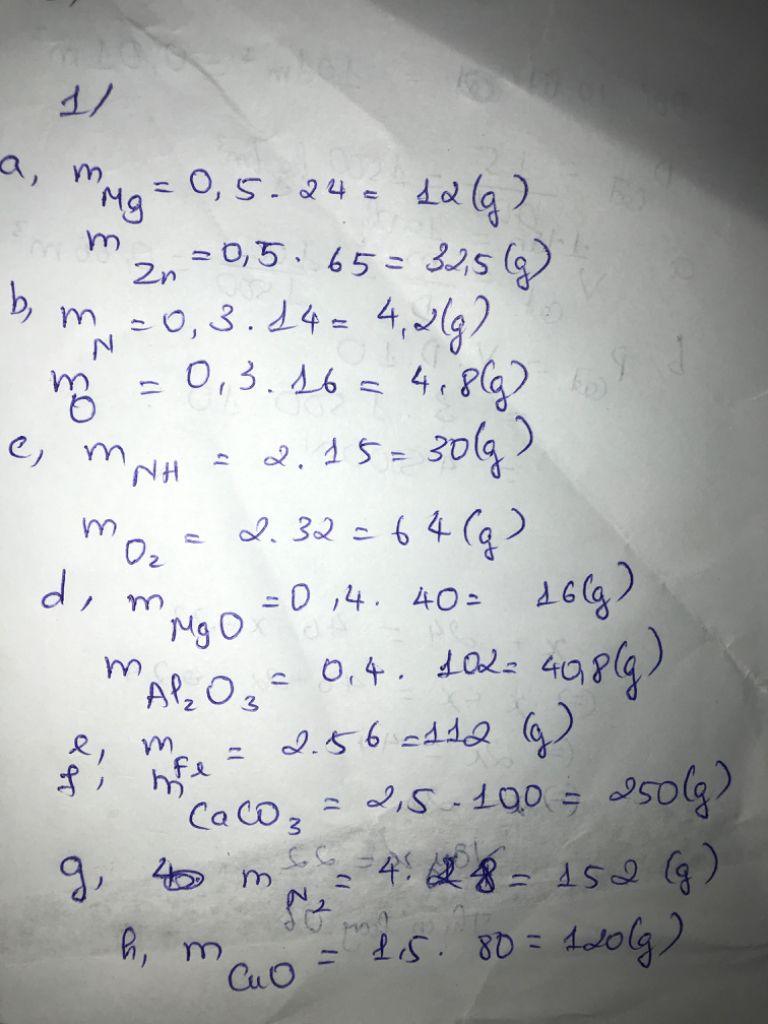 1/
a, mMg = 0,5 . 24 = 12 (g)
mZn = 0,5 . 65 = 32,5 (g)
b, mN = 0,3 . 14 = 4,2 (g)
mO = 0,3 . 16 = 4,8 (g)
c, mNH = 2 . 15 = 30 (g)
mO2 = 2 . 32 = 64 (g)
d, mMgO = 0,4 . 40 = 16 (g)
mAl2O3 = 0,4 . 102 = 40,8 (g)
e, mFe = 2 . 56 = 112 (g)
f, mCaCO3 = 2,5 . 100 = 250 (g)
g, mN2 = 4 . = 152 (g)
h, mCuO = 1,5 . 80 = 120 (g)